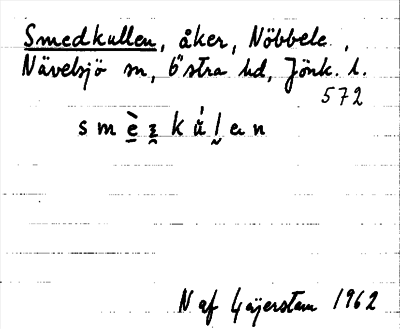 Smedkullen, åker, Nöbbele,
Nävelsjö sn, Östra hd, Jönk. l.
572
N af Geijerstam 1962